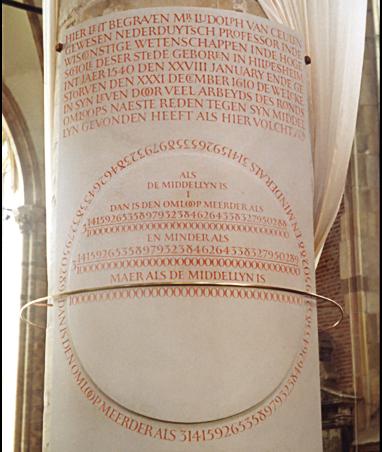 HIER LEIT BEGRAVEN MR. LUDOLPH VAN CEULEN
GEWESEN NEDERDUYTSCH PROFESSOR INDE
WISCONSTIGE WETENSCHAPPEN INDE HOGE
SCHOLE DESER STEDE GEBOREN IN HILDESHEIM
INT JAER 1540 DEN XXVIII JANUARY ENDE GE
STORVEN DEN XXXI DECEMBER 1610 DE WELCKE
IN SYN LEVEN DOOR VEEL ARBEYDS DES RONDS
OMLOOPS NAESTE REDEN TEGEN SYN MIDDEL
LYN GEVONDEN HEEFT ALS HIER VOLCHT
ALS
DE MIDDELLYN IS
1
DAN IS DEN OMLOOP MEERDER ALS
314159265358979323846264338327950288
100000000000000000000000000000000000
EN MINDER ALS
314159265358979323846264338327950289
100000000000000000000000000000000000
MAER ALS DE MIDDELLYN IS
DAN IS DEN OMLOOP MEERDER ALS 314159265358979323846
EN MINDER ALS 314159265358979323846